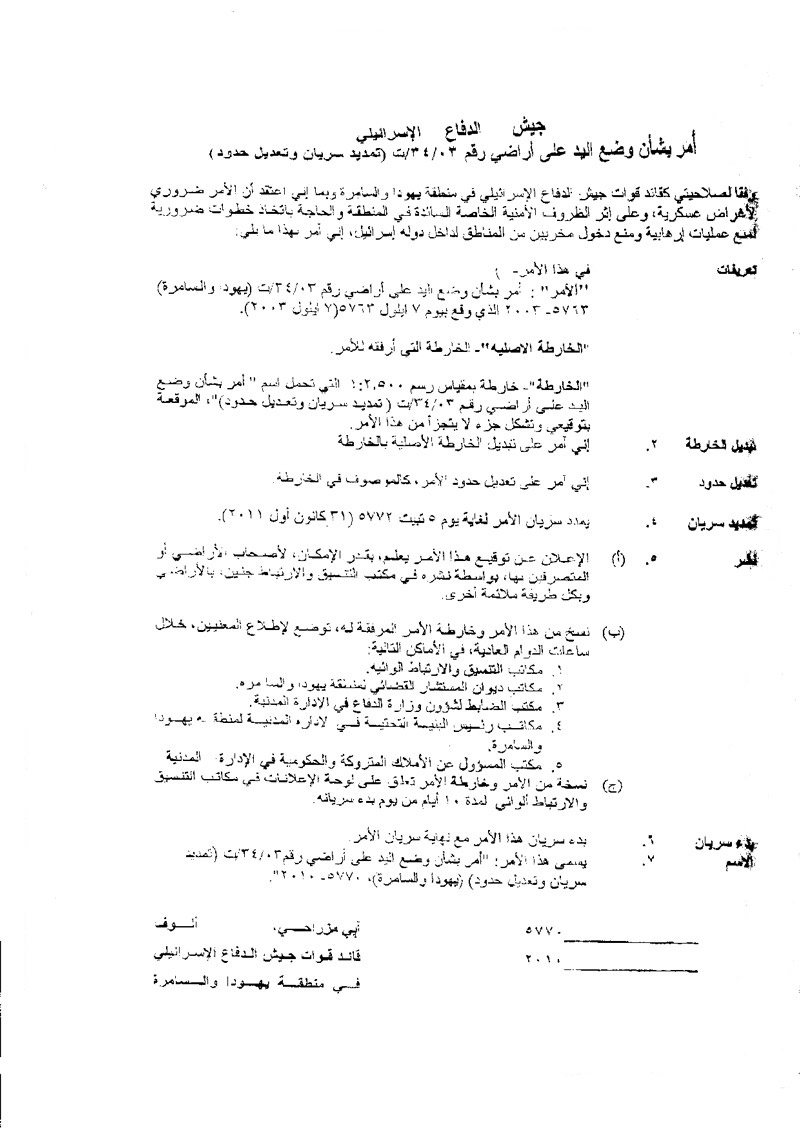 جيش الدفاع الإسرائيلي
أمر بشأن وضع اليد على أراضي رقم ٣٤/٠٣/ت (تمديد سريان وتعديل حدود)
وفقا لصلاحيتي كقائد قوات جيش الدفاع الإسرائيلي في منطقة يهودا والسامرة وبما إني اعتقد أن الأمر ضروري
لأغراض عسكرية، وعلى إثر الظروف الأمنية الخاصة السائدة في المنطقة والحاجة باتخاذ خطوات ضرورية
لمنع عمليات إرهابية ومنع دخول مخربين من المناطق لداخل دوله إسرائيل، إني أمر بهذا ما يلي:
تعريفات في هذا الأمر- )
"الأمر" : أمر بشأن وضع اليد على أراضي رقم ٣٤/٠٣/ت (يهودا والسامرة)
٥٧٦٣-٢٠٠٣ الذي وقع بيوم ٧ ايلول ٥٧٦٣(٧ ايلول ٢٠٠٣).
"الخارطة الاصليه"- الخارطة التي أرفقه للأمر.
"الخارطة"- خارطة بمقياس رسم ١:٢,٥٠٠ التي تحمل اسم " أمر بشأن وضع
اليد على أراضي رقم ٣٤/٠٣/ت ( تمديد سريان وتعديل حدود)"، الموقعة
بتوقيعي وتشكل جزء لا يتجزأ من هذا الأمر.
تبديل الخارطة ٢. إني أمر على تبديل الخارطة الأصلية بالخارطة
تعديل حدود ٣. إني أمر على تعديل حدود الأمر، كالموصوف في الخارطة.
تمديد سريان ٤. يمدد سريان الأمر لغاية يوم ٥ تيبت ٥٧٧٢ (٣١ كانون أول ٢٠١١).
نشر ٥. (أ) الإعلان عن توقيع هذا الأمر يعلم، بقدر الإمكان، لأصحاب الأراضي أو
المتصرفين بها، بواسطة نشره في مكتب التنسيق والارتباط جنين، بالأراضي
وبكل طريقة ملائمة أخرى.
(ب) نسخ من هذا الأمر وخارطة الأمر المرفقة له، توضع لإطلاع المعنيين، خلال
ساعات الدوام العادية، في الأماكن التالية:
١. مكاتب التنسيق والارتباط الوائيه.
٢. مكاتب ديوان المستشار القضائي لمنطقة يهودا والسامره.
٣. مكتب الضابط لشؤون وزارة الدفاع في الإدارة المدنية.
٤. مكاتب رئيس البنية التحتية في لاداره المدنية لمنطقه يهودا
والسامرة.
٥. مكتب المسؤول عن الأملاك المتروكة والحكومية في الإدارة المدنية
(ج) نسخة من الأمر وخارطة الأمر تعلق على لوحة الإعلانات في مكاتب التنسيق
والارتباط ألوائي لمدة ١٠ أيام من يوم بدء سريانه.
بدء سريان ٦. بدء سريان هذا الأمر مع نهاية سريان الأمر.
الاسم ٧. يسمى هذا الأمر: "أمر بشأن وضع اليد على أراضي رقم٣٤/٠٣/ت (تمديد
سريان وتعديل حدود) (يهودا والسامرة)، ٥٧٧٠-٢٠١٠".
٥٧٧٠ أبي مزراحي، ألوف
٢٠١٠ قائد قوات جيش الدفاع الإسرائيلي
في منطقة يهودا والسامرة